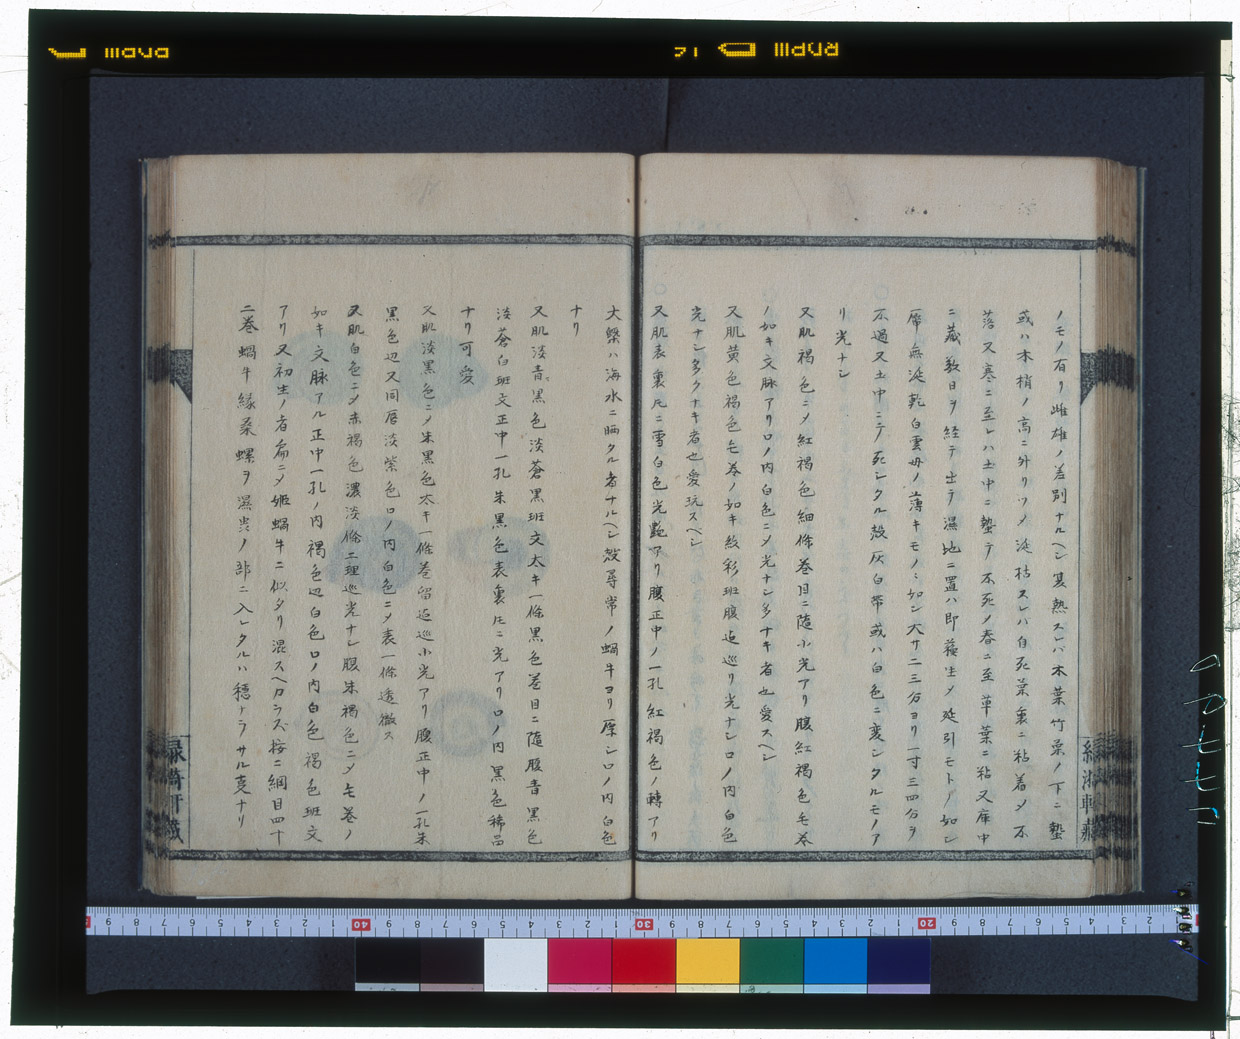 ノモノ有リ雌雄ノ差別ナルヘシ夏熱スレバ木葉竹葉ノ下ニ蟄
或ハ木梢ノ高ニ外リツメ涎枯スレハ自死葉裏ニ粘着メ不
落又寒ニ至レハ土中ニ蟄テ不死メ春ニ至草葉ニ粘又庫中
ニ蔵数日ヲ経テ出テ湿地ニ置ハ即蘓生メ延引モトノ如シ
無涎乾白雲母ノ薄キモノヽ如シ大サ二三分ヨリ一寸三四分ヲ
不過又土中ニテ死シタル殻灰白帯或ハ白色ニ変シタルモノア
リ光ナシ
又肌褐色ニメ紅褐色細條巻目ニ随小光アリ腹紅褐色毛巻
ノ如キ文脉アリ口ノ内白色ニメ光ナシ多ナキ者也愛スヘシ
又肌黄色褐色毛巻ノ如キ紋彩班腹迠巡リ光ナシ口ノ内白色
光ナシ多クナキ者也愛玩スヘシ
又肌表裏𪜈ニ雪白色光艶アリ腹正中ノ一孔紅褐色ノ轉アリ
大槩ハ海水ニ晒タル者ナルヘシ殻尋常ノ蝸牛ヨリ厚シ口ノ内白色
ナリ
又肌淡青黒色淡蒼黒班文太キ一條黒色巻目ニ随腹青黒色
淡蒼白班文正中一孔朱黒色表裏𪜈ニ光アリ口ノ内黒色稀品
ナリ可愛
又肌淡黒色ニメ朱黒色太キ一條巻留迠巡小光アリ腹正中ノ一孔朱
黒色辺又同唇淡紫色口ノ内白色ニメ表一條透徹ス
又肌白色ニメ赤褐色濃淡條工理巡光ナシ腹朱褐色ニメ毛巻ノ
如キ文脉アル正中一孔ノ内褐色辺白色口ノ内白色褐色班文
アリ又初生ノ者扁ニメ姫蝸牛ニ似タリ混スヘカラズ按ニ綱目四十
二巻蝸牛縁桑螺ヲ湿䖝ノ部ニ入レタルハ穏ナラサル㕝ナリ
緑漪軒蔵
緑漪軒蔵